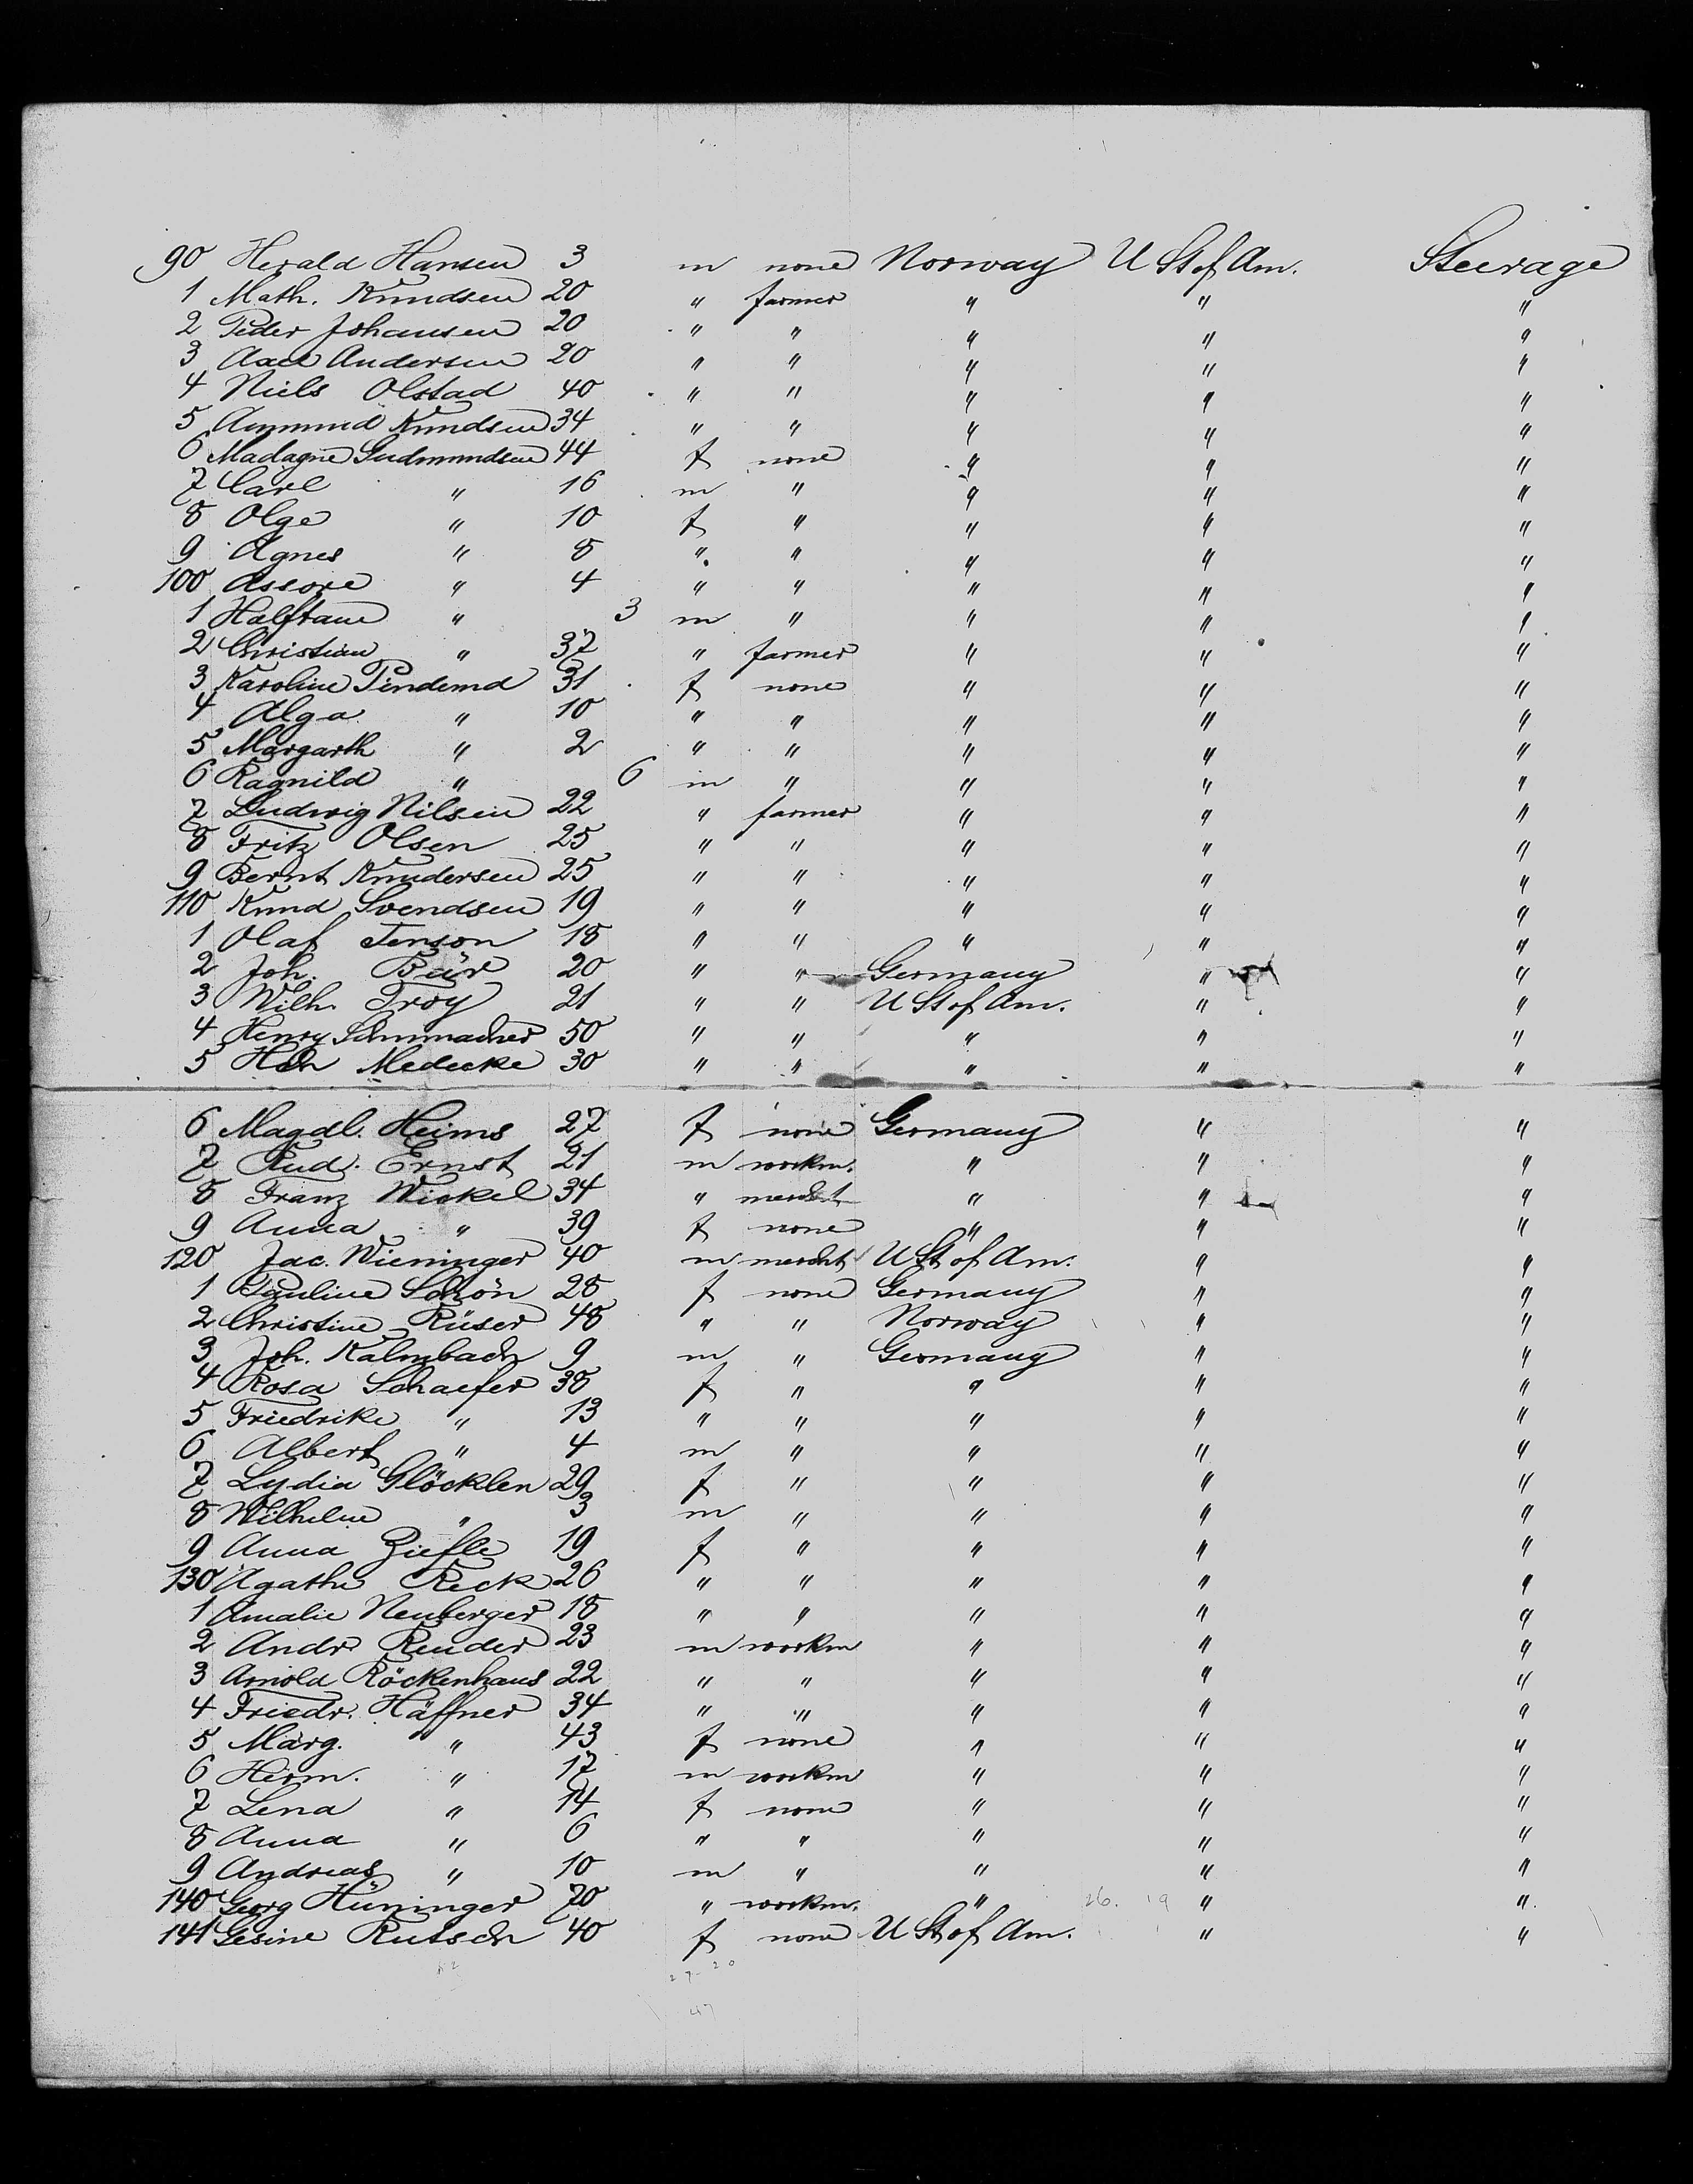 90 Herald Hansen 3 m none Norway U St of Am. Steerage
1 Math. Knudsen 20 " farmer " " "
2 Peder Johansen 20 " " " " "
3 Axel Andersen 20 " " " " "
4 Niels Olstad 40 " " " " "
5 Ammund Knudsen 34 " " " " "
6 Madagne Gudmundsen 44 f none " " "
7 Carl " 16 m " " " "
8 Olge " 10 f " " " "
9 Agnes " 8 " " " " "
100 Assore " 4 " " " " "
1 Halftane " 3 m " " " "
2 Christian " 37 " farmer " " "
3 Karoline Pindemd 31 f none " " "
4 Alga " 10 " " " " "
5 Margarth " 2 " " " " "
6 Ragnild " 6 m " " " "
7 Ludwig Nilsen 22 " farmer " " "
8 Fritz Olsen 25 " " " " "
9 Bernt Knudersen 25 " " " " "
110 Knud Svendsen 19 " " " " "
1 Olaf Jenson 18 " " " " "
2 Joh. Bär 20 " " Germany " "
3 Wilh. Troy 21 " " U St of Am. " "
4 Henry Schumacher 50 " " " " "
5 Hch Medecke 30 " " " " "
6 Magdl. Heims 27 f none Germany " "
7 Rud. Ernst 21 m workm. " " "
8 Franz Wickel 34 " mercht " " "
9 Anna " 39 f none " " "
120 Jac. Wieninger 40 m mercht U St of Am. " "
1 Pauline Schön 28 f none Germany " "
2 Christine Rüser 48 " " Norway " "
3 Joh. Kalmbach 9 m " Germany " "
4 Rosa Schaefer 38 f " " " "
5 Friedrike " 13 " " " " "
6 Albert " 4 m " " " "
7 Lydia Glöcklen 29 f " " " "
8 Wilhelm " 3 m " " " "
9 Anna Ziefle 19 f " " " "
130 Agathe Reck 26 " " " " "
1 Amalie Neuberger 18 " " " " "
2 Andr. Reuder 23 m workm " " "
3 Arnold Röckenhaus 22 " " " " "
4 Friedr. Häffner 34 " " " " "
5 Marg. " 43 f none " " "
6 Herm. " 17 m workm " " "
7 Lena " 14 f none " " "
8 Anna " 6 " " " " "
9 Andreas " 10 m " " " "
140 Georg Hüninger 70 " workm. " 26. 19 " "
141 Gesine Rutsch 40 f none U St of Am. " "
27-20
47